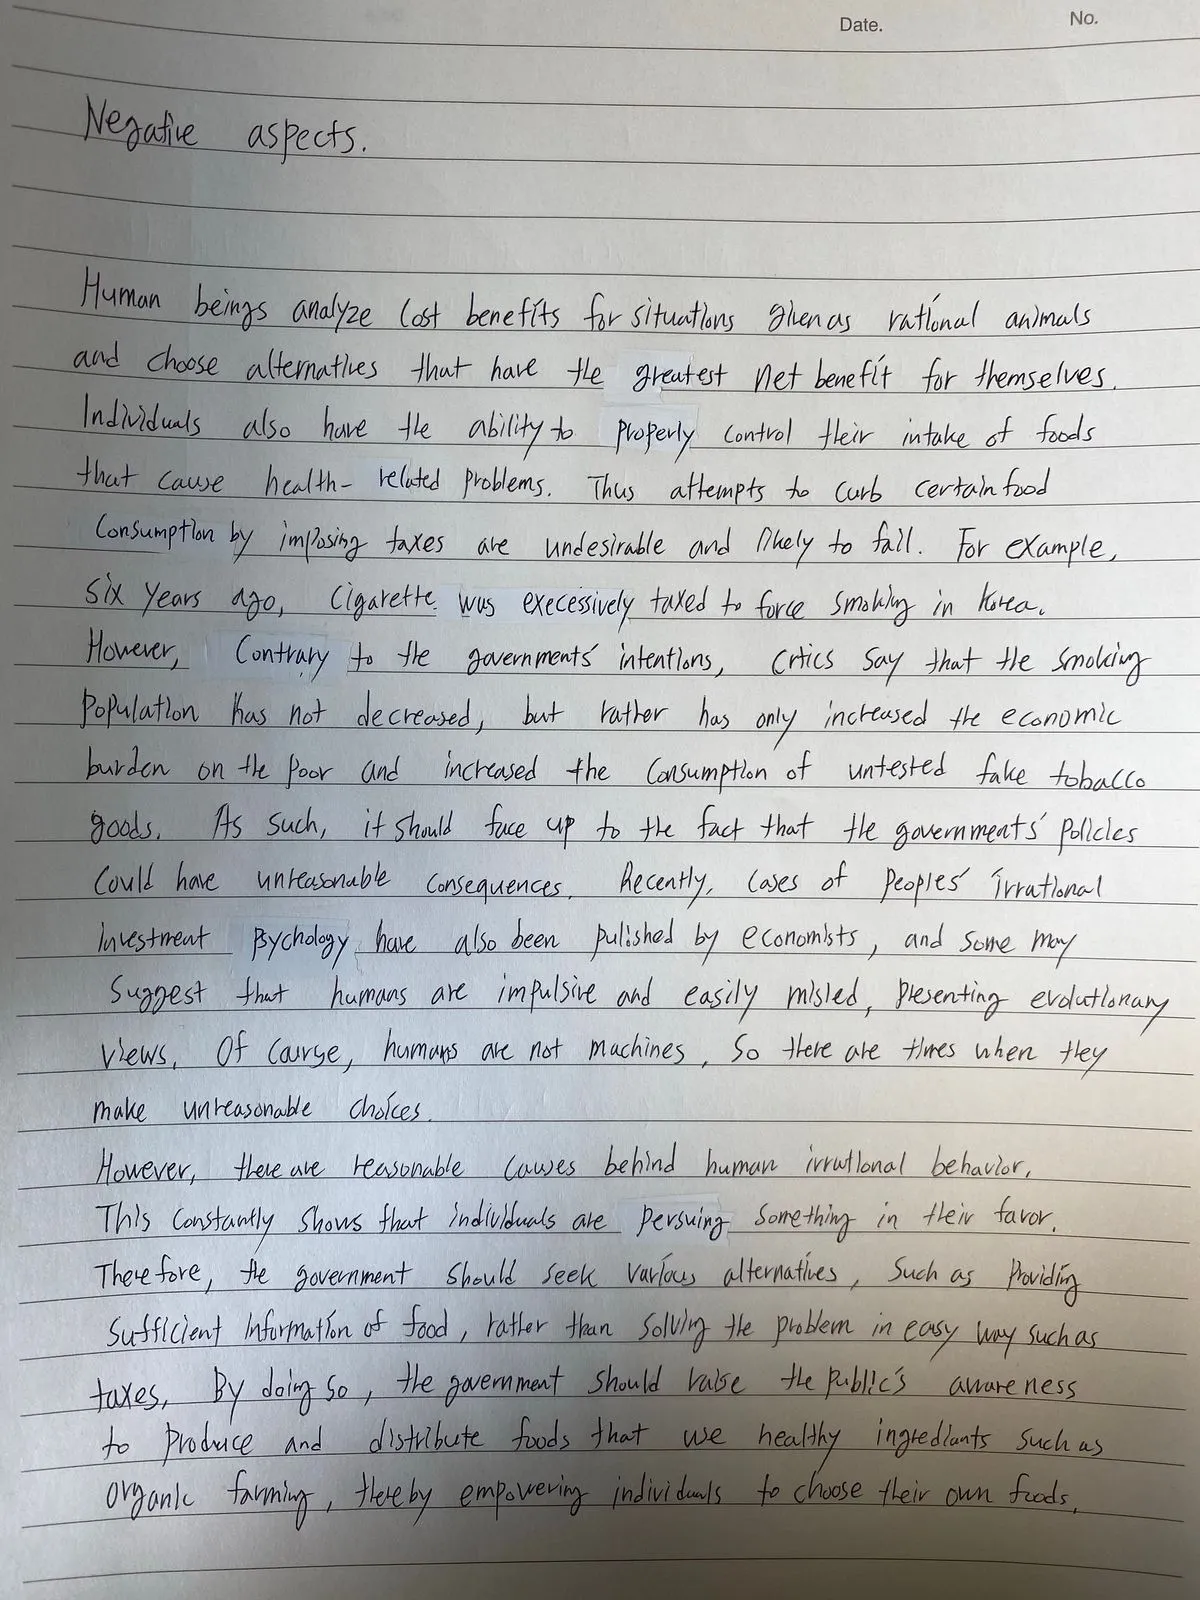 Date.
No.
Negative aspects.
Human beings analyze cost benefits for situations given as rational animals
and choose alternatives that have the greatest net benefit for themselves.
Individuals also have the ability to properly control their intake of foods
that cause health-related problems. Thus attempts to curb certain food
Consumption by imposing taxes are undesirable and likely to fail. For example,
six years ago, cigarette was execessively taxed to force smoking in Korea.
However, Contrary to the governments' intentions, crtics say that the smoking
population has not decreased, but rather has only increased the economic
burden on the poor and increased the consumption of untested fake tobacco
goods. As such, it should face up to the fact that the governments' policies
could have unreasonable consequences. Recently, cases of peoples' irrational
investment psychology have also been pulished by economists, and some may
suggest that humans are impulsive and easily misled, presenting evolutionary
views. Of course, humans are not machines, so there are times when they
make unreasonable choices.
However, there are reasonable causes behind human irrational behavior.
This constantly shows that individuals are persuing something in their favor.
Therefore, the government should seek various alternatives, such as providing
sufficient information of food, rather than solving the problem in easy way such as
taxes. By doing so, the government should raise the public's awareness
to produce and distribute foods that use healthy ingrediants such as
organic farming, thereby empowering individuals to choose their own foods.